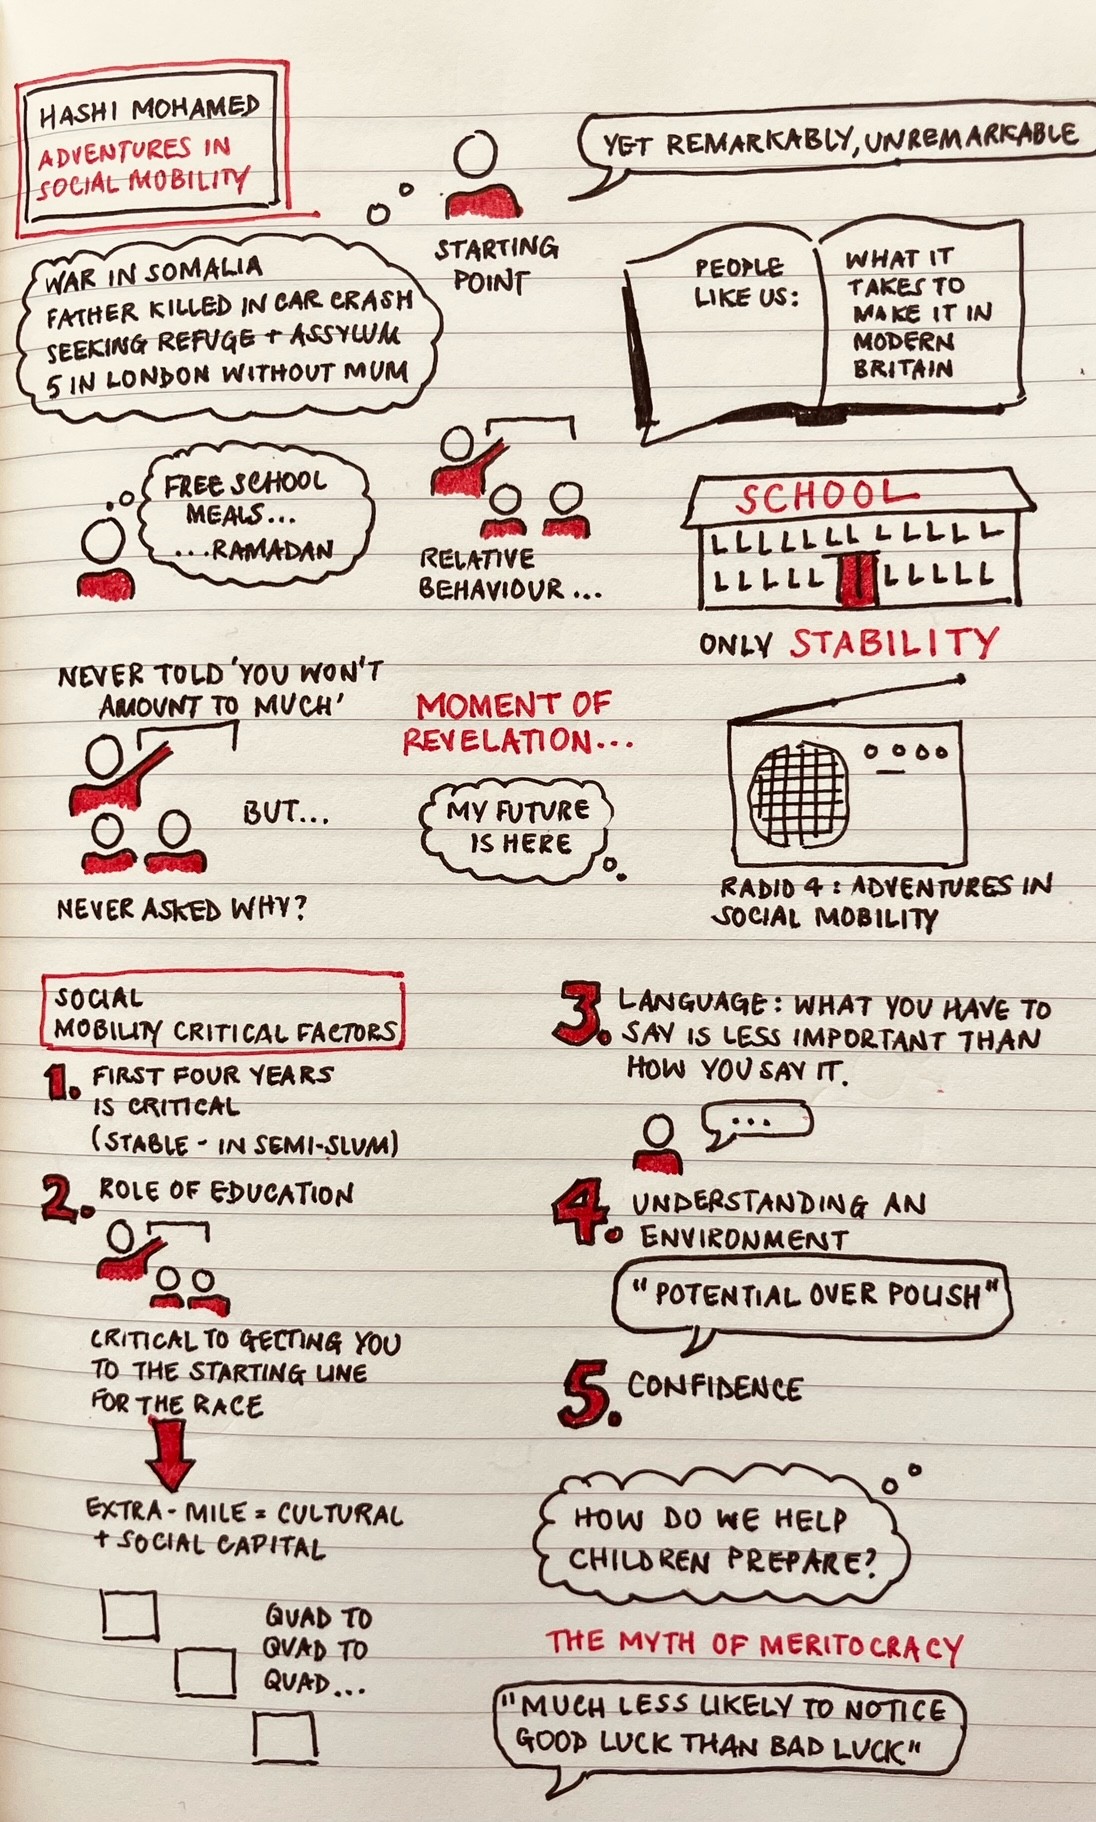 HASHI MOHAMED
ADVENTURES IN
SOCIAL MOBILITY
YET REMARKABLY, UNREMARKABLE
STARTING
POINT
WAR IN SOMALIA
FATHER KILLED IN CAR CRASH
SEEKING REFUGE + ASSYLUM
5 IN LONDON WITHOUT MUM
PEOPLE
LIKE US:
WHAT IT
TAKES TO
MAKE IT IN
MODERN
BRITAIN
FREE SCHOOL
MEALS...
...RAMADAN
RELATIVE
BEHAVIOUR...
SCHOOL
ONLY STABILITY
NEVER TOLD 'YOU WON'T
AMOUNT TO MUCH'
BUT...
NEVER ASKED WHY?
MOMENT OF
REVELATION...
MY FUTURE
IS HERE
RADIO 4: ADVENTURES IN
SOCIAL MOBILITY
SOCIAL
MOBILITY CRITICAL FACTORS
1. FIRST FOUR YEARS
IS CRITICAL
(STABLE - IN SEMI-SLUM)
2. ROLE OF EDUCATION
CRITICAL TO GETTING YOU
TO THE STARTING LINE
FOR THE RACE
EXTRA-MILE = CULTURAL
+ SOCIAL CAPITAL
QUAD TO
QUAD TO
QUAD...
3. LANGUAGE: WHAT YOU HAVE TO
SAY IS LESS IMPORTANT THAN
HOW YOU SAY IT.
...
4. UNDERSTANDING AN
ENVIRONMENT
"POTENTIAL OVER POLISH"
5. CONFIDENCE
HOW DO WE HELP
CHILDREN PREPARE?
THE MYTH OF MERITOCRACY
"MUCH LESS LIKELY TO NOTICE
GOOD LUCK THAN BAD LUCK"